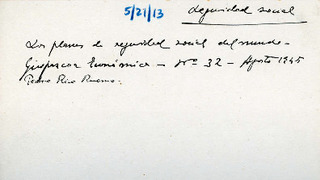 5/21/13
seguridad social
Los planes de seguridad social del mundo -
Guipuzcoa Económica - Nº 32 - Agosto 1945
Pedro Rico